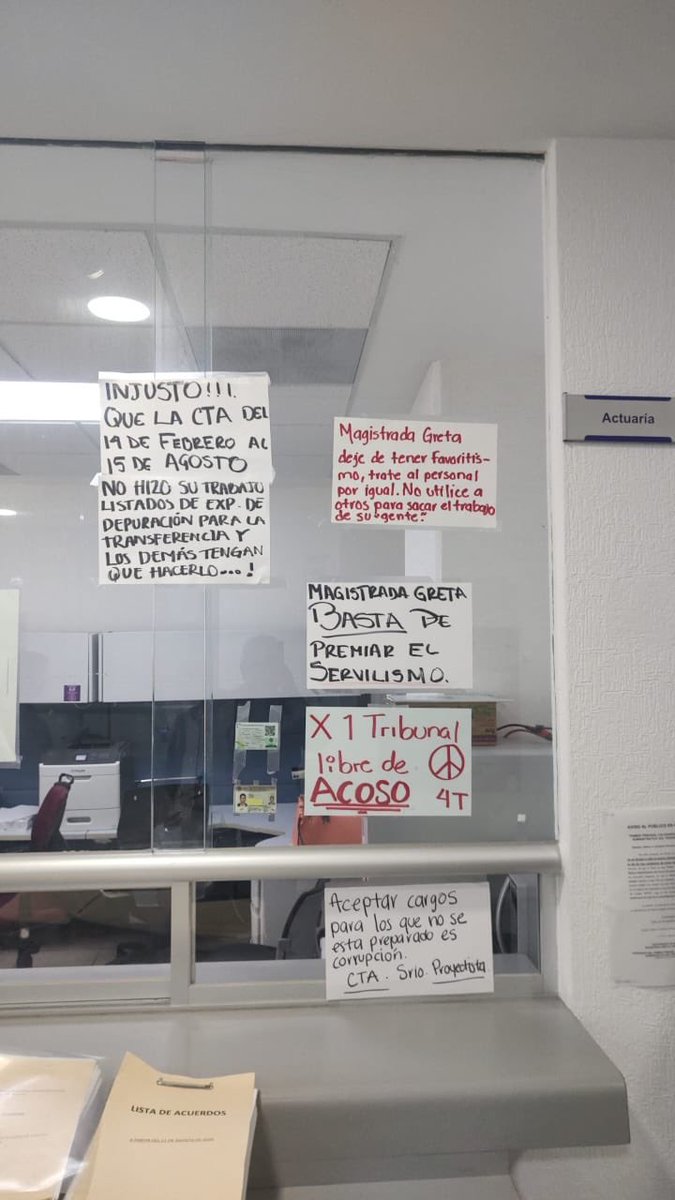 INJUSTO!!!.
QUE LA CTA DEL
19 DE FEBRERO AL
15 DE AGOSTO
NO HIZO SU TRABAJO
LISTADOS DE EXP. DE
DEPURACIÓN PARA LA
TRANSFERENCIA Y
LOS DEMÁS TENGAN
QUE HACERLO...!
Magistrada Greta
deje de tener favoritis-
mo, trate al personal
por igual. No utilice a
otros para sacar el trabajo
de su gente."
Actuaría
MAGISTRADA GRETA
BASTA DE
PREMIAR EL
SERVILISMO.
X 1 Tribunal
libre de
ACOSO
4T
Aceptar cargos
para los que no se
esta preparado es
corrupción.
CTA. Srio. Proyectista
LISTA DE ACUERDOS